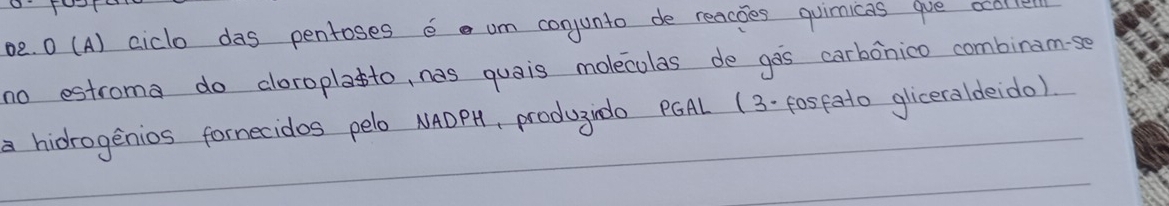 02. O (A) ciclo das pentoses é um conjunto de reações químicas que ocorrem
no estroma do cloroplasto, nas quais moléculas de gás carbônico combinam-se
a hidrogênios fornecidos pelo NADPH, produzindo PGAL (3-fosfato gliceraldeido).